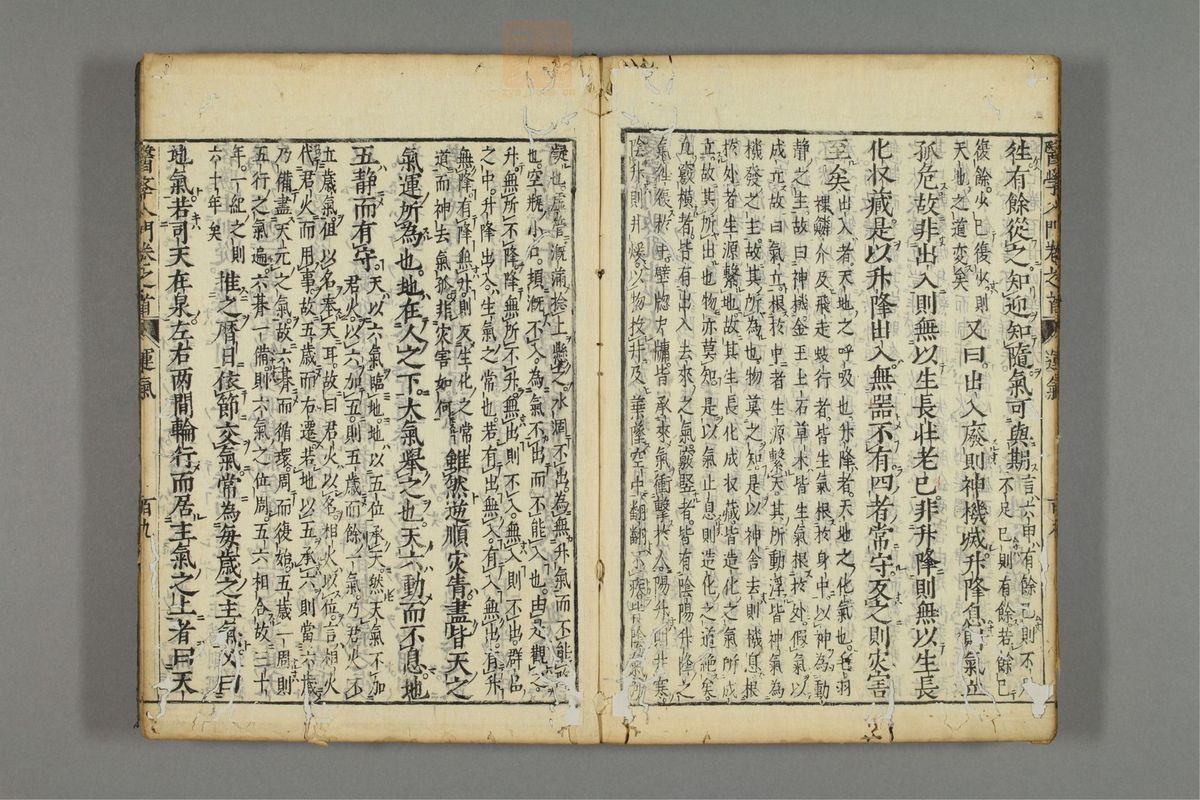 徃有餘從之知迎知隨氣可與期言六甲有餘己則不
不足己則有餘若餘己
復餘少已復少則
天地之道變矣又曰出入廢則神機滅升降息則氣立
孤危故非出入則無以生長壯老已非升降則無以生長
化収藏是以升降出入無器不有四者常守反之則灾害
至矣出入者天地之呼吸也升降者天地之化氣也毛羽
倮鱗介及飛走蚑行者皆生氣根於身中以神為動
静之主故曰神機金玉土石草木皆生氣根於処假氣以
成立故曰氣立根於中者生源繫天其所動浮皆神氣為
機發之主故其所為也物莫之知是以神舍去則機息根
於処者生源繫地故其生長化成収藏皆造化之氣所成
立故其所出也物亦莫知是以氣止息則造化之道絶矣
直竅横者皆有出入去來之氣竅竪者皆有陰陽升降之
氣徃復於中壁牕戸牖皆承來氣衝擊於人陽升則井寒
陰升則井煖以物投井及葉墜空中翩翩不疾皆陰氣所
礙也虛管漑滿捻上懸之水固不出為無升氣而不能
也空瓶小口頓漑不入為氣不出而不能入也由是觀之
升無所不降降無所不升無出則不入無入則不出群品
之中升降出入生氣之常也若有出無入有入無出有升
無降有降無升則反生化之常
道而神去氣孤非灾害如何雖然逆順灾眚盡皆天之
氣運所為也地在人之下大氣舉之也天六動而不息地
五静而有守天以六氣臨地地以五位承天然天氣不加
君火以六加五則五歳而餘一氣乃君火不
立歳氣但以名奉天耳故曰君火以名相火以位言相火
代君火而用事故五歳而右遷若地以五承六則當六歳
乃備盡天元之氣故六朞而循環周而復始五歳一周則
五行之氣遍六朞一備則六氣之位周五六相合故三十
年一紀之則
六十年矣推之暦日依節交氣常為毎歳之主氣又曰
地氣若司天在泉左右両間輪行而居主氣之上者曰天
醫學入門卷之首 運氣 百九
醫學入門卷之首 運氣